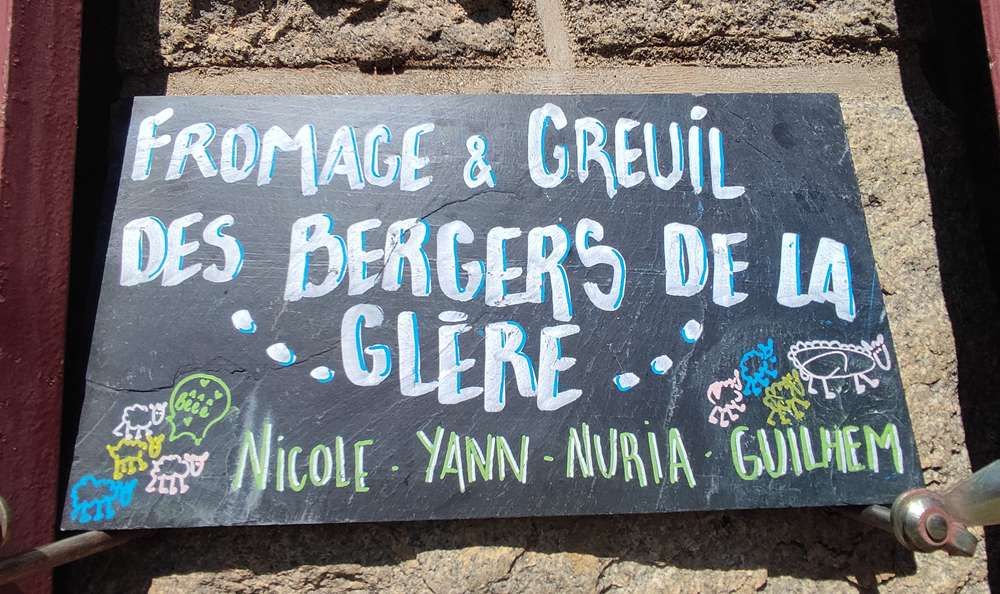 FROMAGE & GREUIL
DES BERGERS DE LA
GLÈRE
NICOLE · YANN · NURIA · GUILHEM